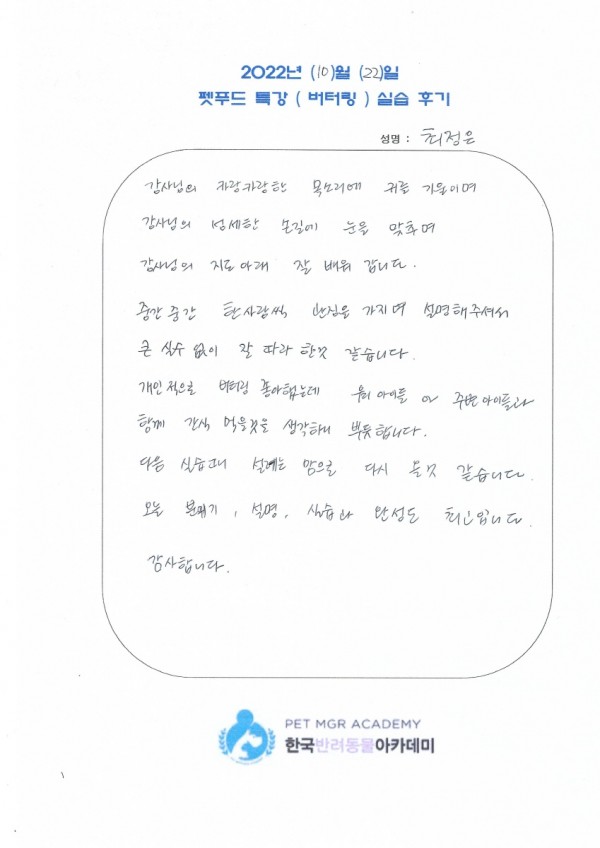 2022년 (10)월 (22)일
펫푸드 특강 ( 버터링 ) 실습 후기
성명 : 최정은
강사님의 카랑카랑한 목소리에 귀를 기울이며
강사님의 섬세한 손길에 눈을 맞추며
강사님의 지도아래 잘 배워 갑니다.
중간중간 한사람씩 관심을 가지며 설명해주셔서
큰 실수 없이 잘 따라 한것 같습니다.
개인적으로 버터링 좋아했는데 우리 아이들 or 주변아이들과
함께 간식 먹을것을 생각하니 뿌듯합니다.
다음 실습때 설레는 맘으로 다시 올것 같습니다.
오늘 분위기, 설명, 실습과 완성도 최고입니다.
감사합니다.
PET MGR ACADEMY
한국반려동물아카데미